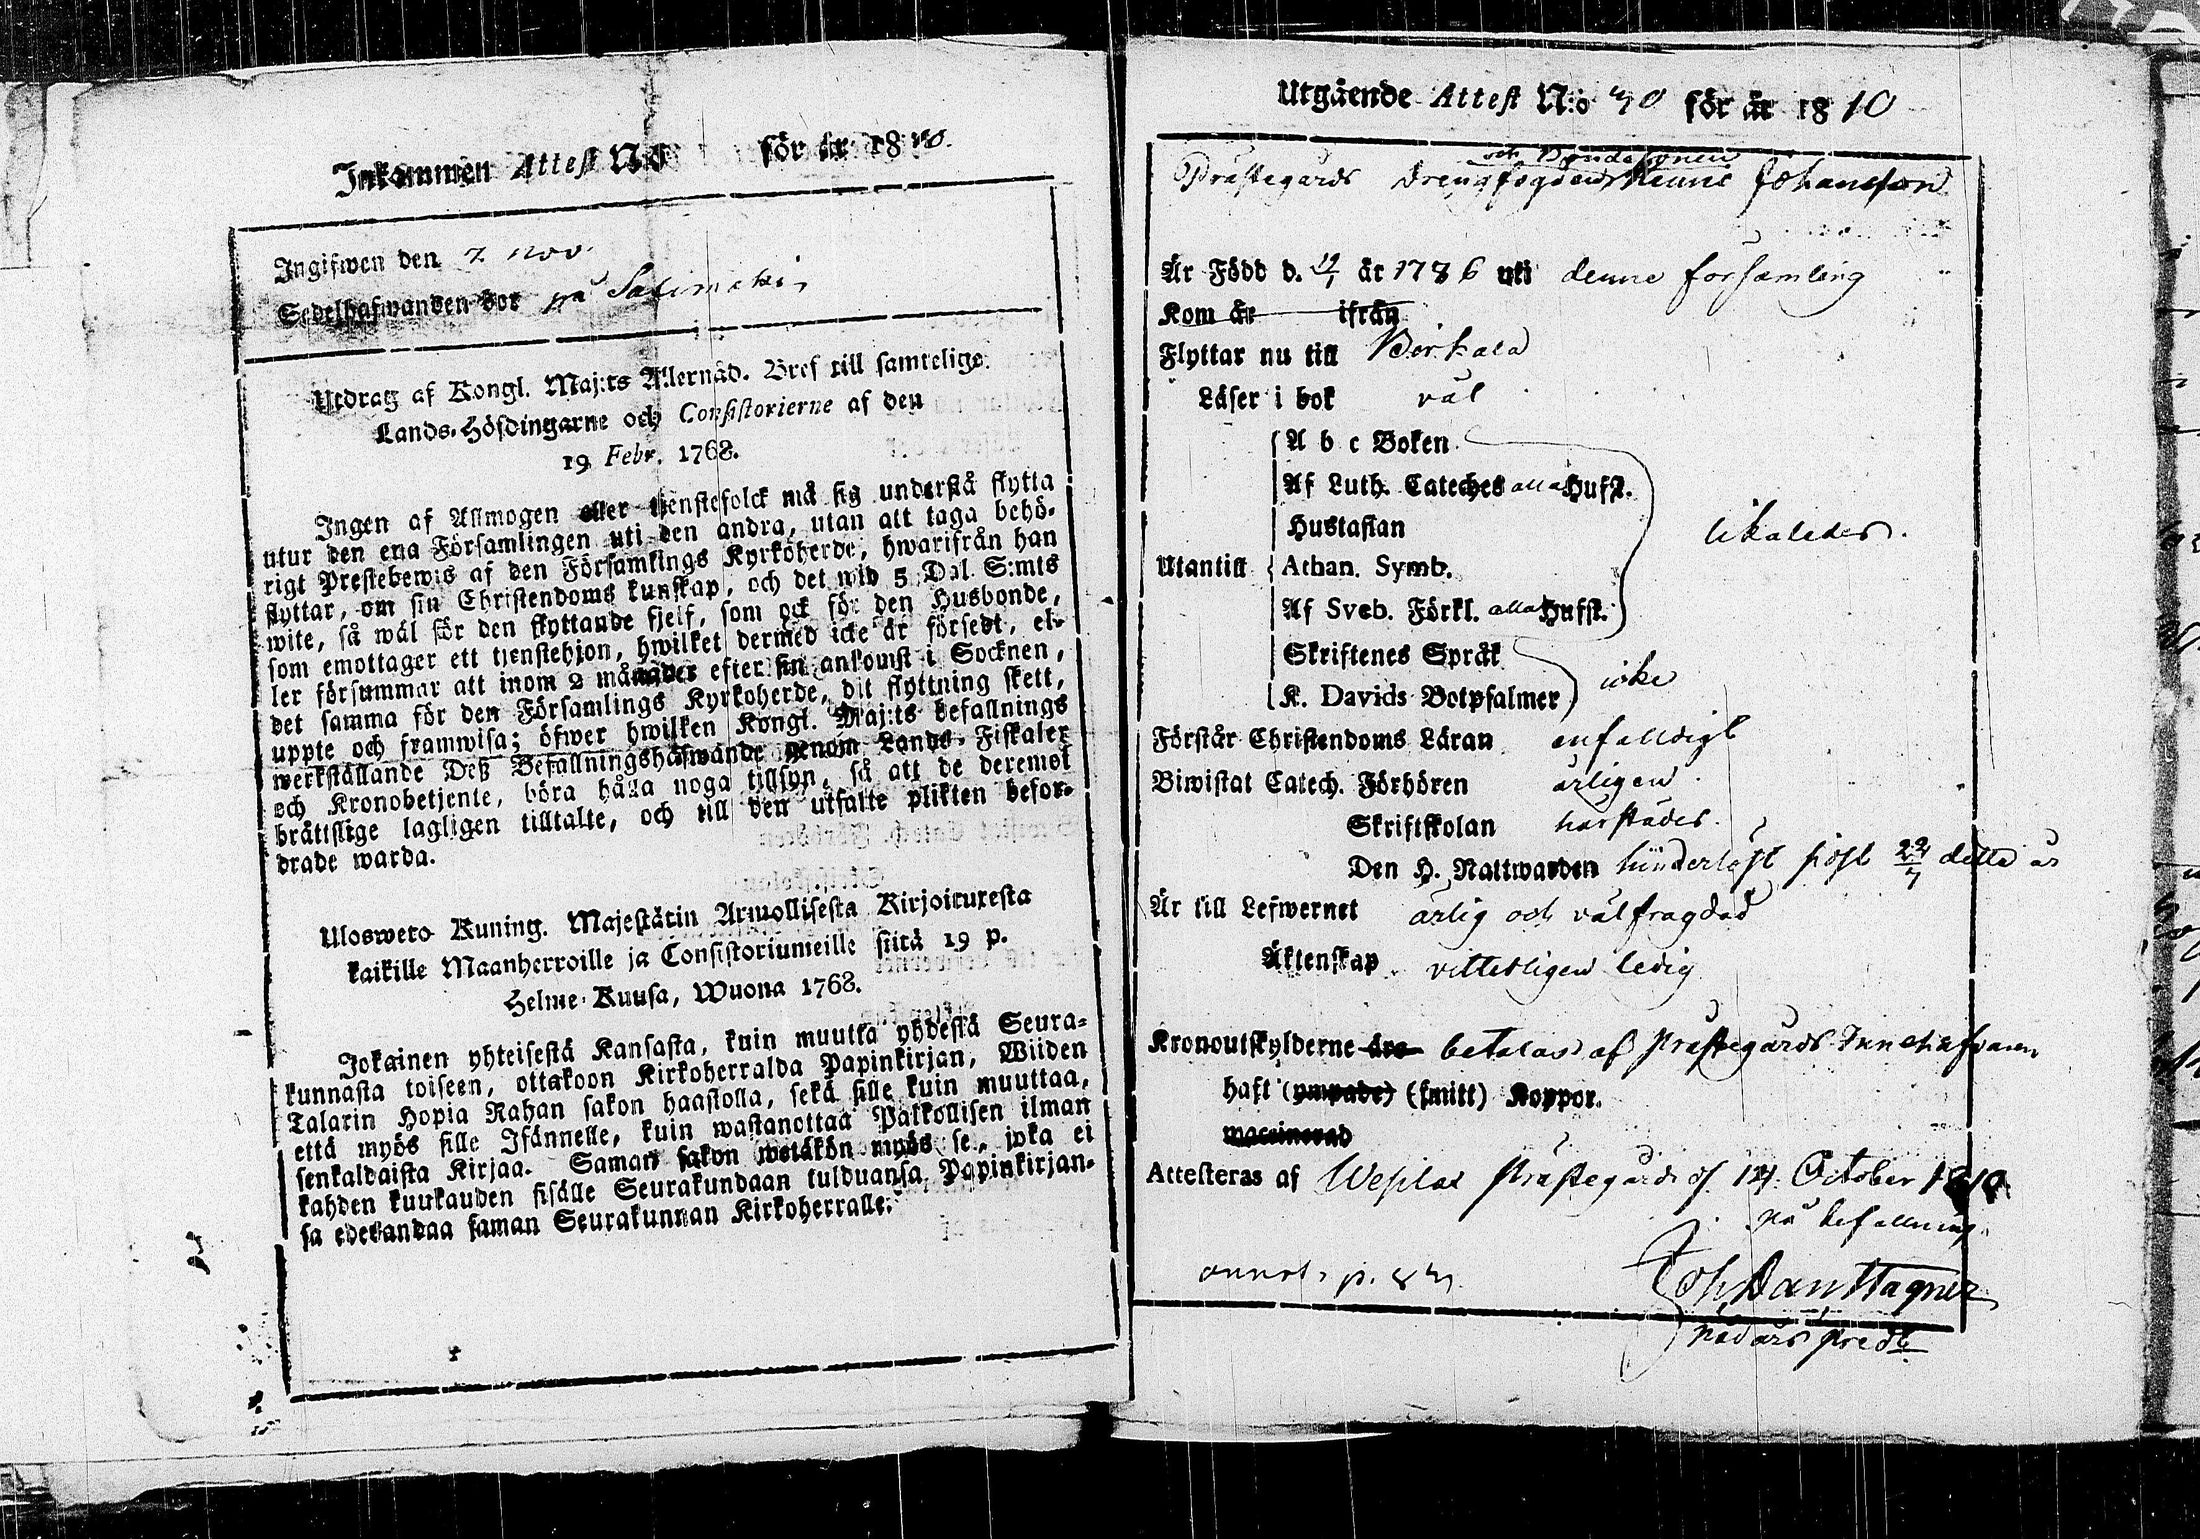 Inkommen Attest N:o för år 1810.
Ingifwen den 7 nov.
Sedelhafwanden bor på Salimäki
Utdrag af Kongl. Maj:ts Allernåd. Bref till samtelige
Lands-Höfdingarne och Consistorierne af den
19 Febr. 1768.
Ingen af Allmogen eller tjenstefolck må sig understå flytta
utur den ena Församlingen uti den andra, utan att taga behö-
rigt Prestebewis af den Församlings Kyrkoherde, hwarifrån han
flyttar, om sin Christendoms kunskap, och det wid 5 Dal. S:mts
wite, så wäl för den flyttande sjelf, som ock för den Husbonde,
som emottager ett tjenstehjon, hwilket dermed icke är försedt, el-
ler försummar att inom 2 månader efter sin ankomst i Socknen,
det samma för den Församlings Kyrkoherde, dit flyttning skett,
uppte och framwisa; öfwer hwilken Kongl. Maj:ts befallnings
werkställande Deß Befallningshafwande genom Lands-Fiskaler
och Kronobetjente, böra hålla noga tillsyn, så att de deremot
bråttslige lagligen tilltalte, och till den utsatte plikten befor-
drade warda.
Ulosweto Kuning. Majestätin Armollisesta Kirjoituxesta
kaikille Maanherroille ja Consistoriumeille siitä 19 p.
Helme-Kuusa, Wuona 1768.
Jokainen yhteisestä Kansasta, kuin muutta yhdestä Seura-
kunnasta toiseen, ottakoon Kirkoherralda Papinkirjan, Wiiden
Talarin Hopia Rahan sakon haastolla, sekä sille kuin muuttaa,
että myös sille Isännelle, kuin wastanottaa Palkollisen ilman
senkaldaista Kirjaa. Saman sakon wetäkön myös se, joka ei
kahden kuukauden sisälle Seurakundaan tulduansa Papinkirjan-
sa edesandaa saman Seurakunnan Kirkoherralle.
Utgående Attest N:o 40 för år 1810
och Bondesonen
Prästegårds Drengfogden Johansson
Är Född d. år 1786 uti denne församling
Kom år ifrån
Flyttar nu till Birkala
Läser i bok väl
A b c Boken
Af Luth. Cateches alla Hufst.
Hustaflan likaledes.
Utantill Athan. Symb.
Af Sveb. Förkl. alla Hufst.
Skriftenes Språk
K. Davids Botpsalmer icke
Förstår Christendoms Läran enfalldigt
Biwistat Catech. Förhören årligen
Skriftskolan härstädes.
Den H. Nattwarden hinderlöst sidst detta år
Är till Lefwernet ärlig och välfrägdad
Äktenskap vitterligen ledig
Kronoutskylderne äro betalas af Prästegårds Innehafvaren
haft (ympade) (smitt) Koppor.
waccinerad
Attesteras af Wesilax Prästegård d. 14 October 1810
på befallning.
annot. p. 84 Joh. Dan Hagner
Nådårs Pred.